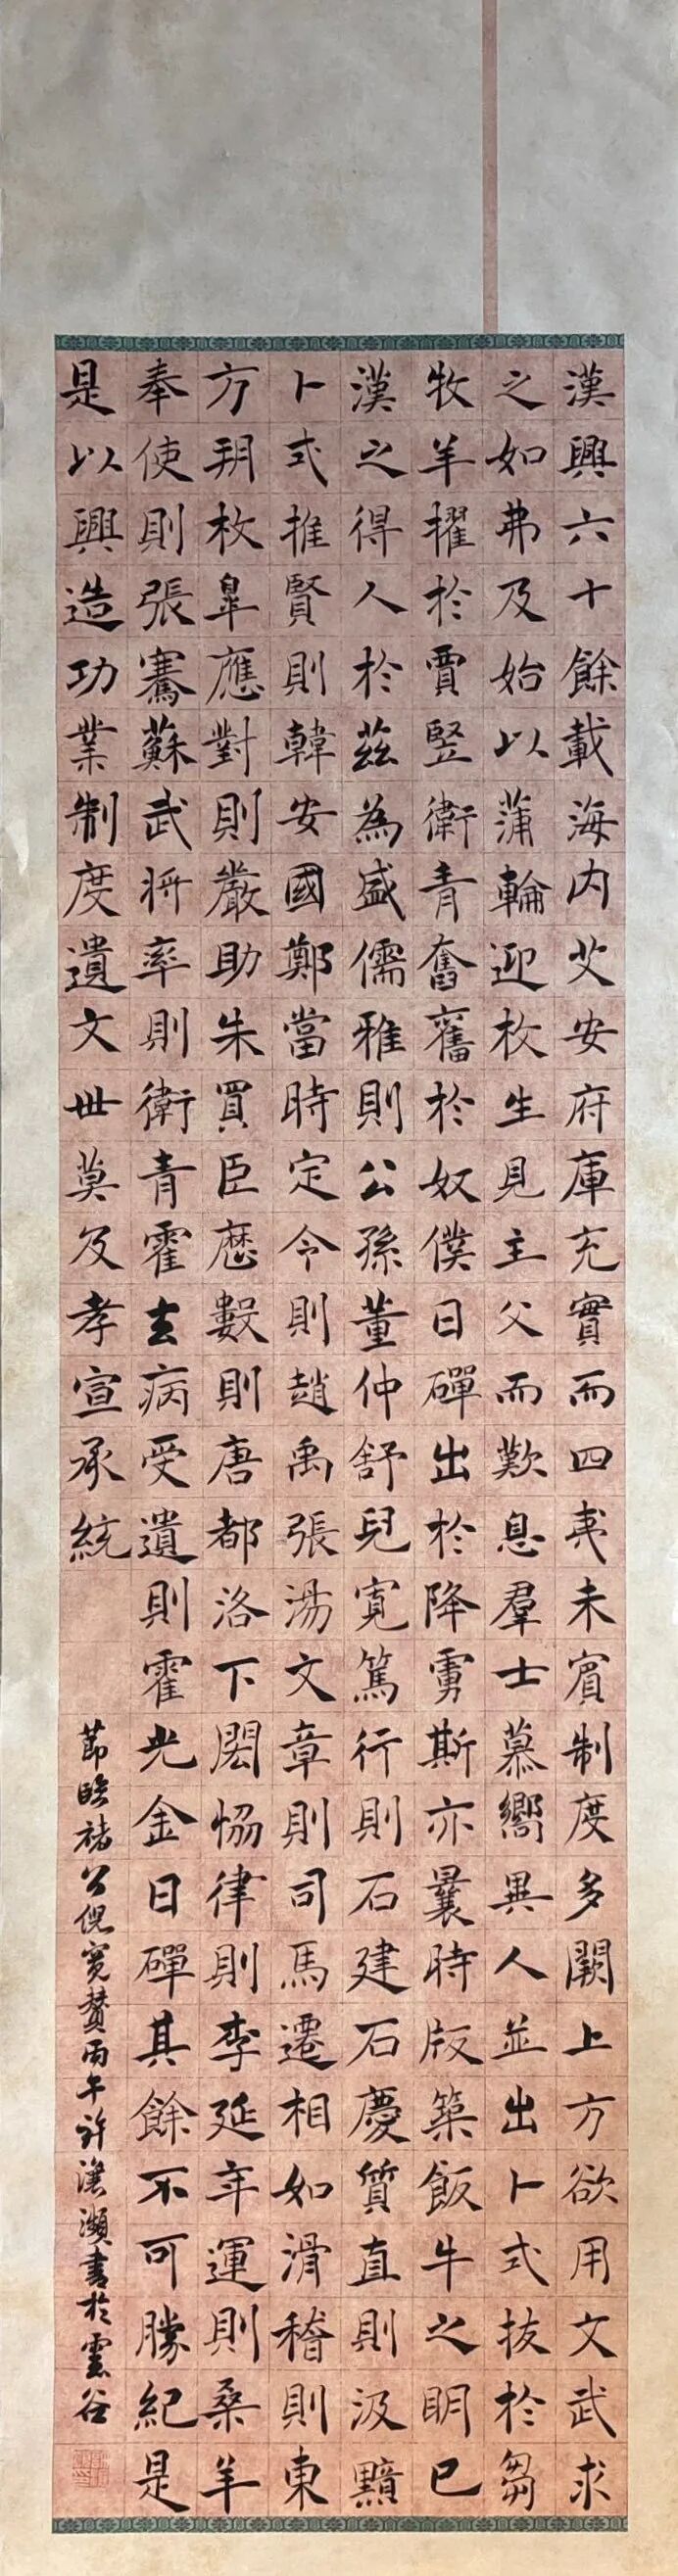 漢興六十餘載海内艾安府庫充實而四夷未賓制度多闕上方欲用文武求
之如弗及始以蒲輪迎枚生見主父而歎息羣士慕嚮異人並出卜式拔於芻
牧羊擢於賈竪衛青奮舊於奴僕日磾出於降虜斯亦曩時版築飯牛之明已
漢之得人於茲為盛儒雅則公孫董仲舒兒寬篤行則石建石慶質直則汲黯
卜式推賢則韓安國鄭當時定令則趙禹張湯文章則司馬遷相如滑稽則東
方朔枚臯應對則嚴助朱買臣歷數則唐都洛下閎協律則李延年運則桑羊
奉使則張騫蘇武將率則衛青霍去病受遺則霍光金日磾其餘不可勝紀是
是以興造功業制度遺文世莫及孝宣承統
節臨褚公倪寬贊丙午許濱瀕書於雲谷